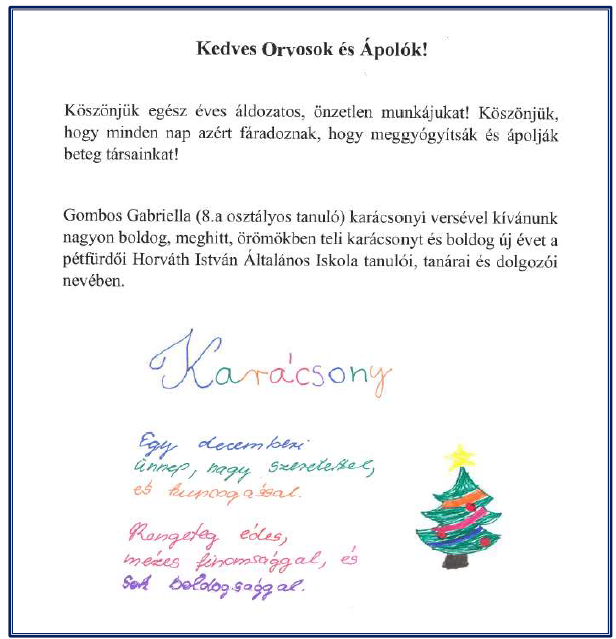 Kedves Orvosok és Ápolók!
Köszönjük egész éves áldozatos, önzetlen munkájukat! Köszönjük,
hogy minden nap azért fáradoznak, hogy meggyógyítsák és ápolják
beteg társainkat!
Gombos Gabriella (8.a osztályos tanuló) karácsonyi versével kívánunk
nagyon boldog, meghitt, örömökben teli karácsonyt és boldog új évet a
pétfürdői Horváth István Általános Iskola tanulói, tanárai és dolgozói
nevében.
Karácsony
Egy decemberi
ünnep, nagy szeretettel,
és kuncogással.
Rengeteg édes,
mézes finomsággal, és
sok boldogsággal.